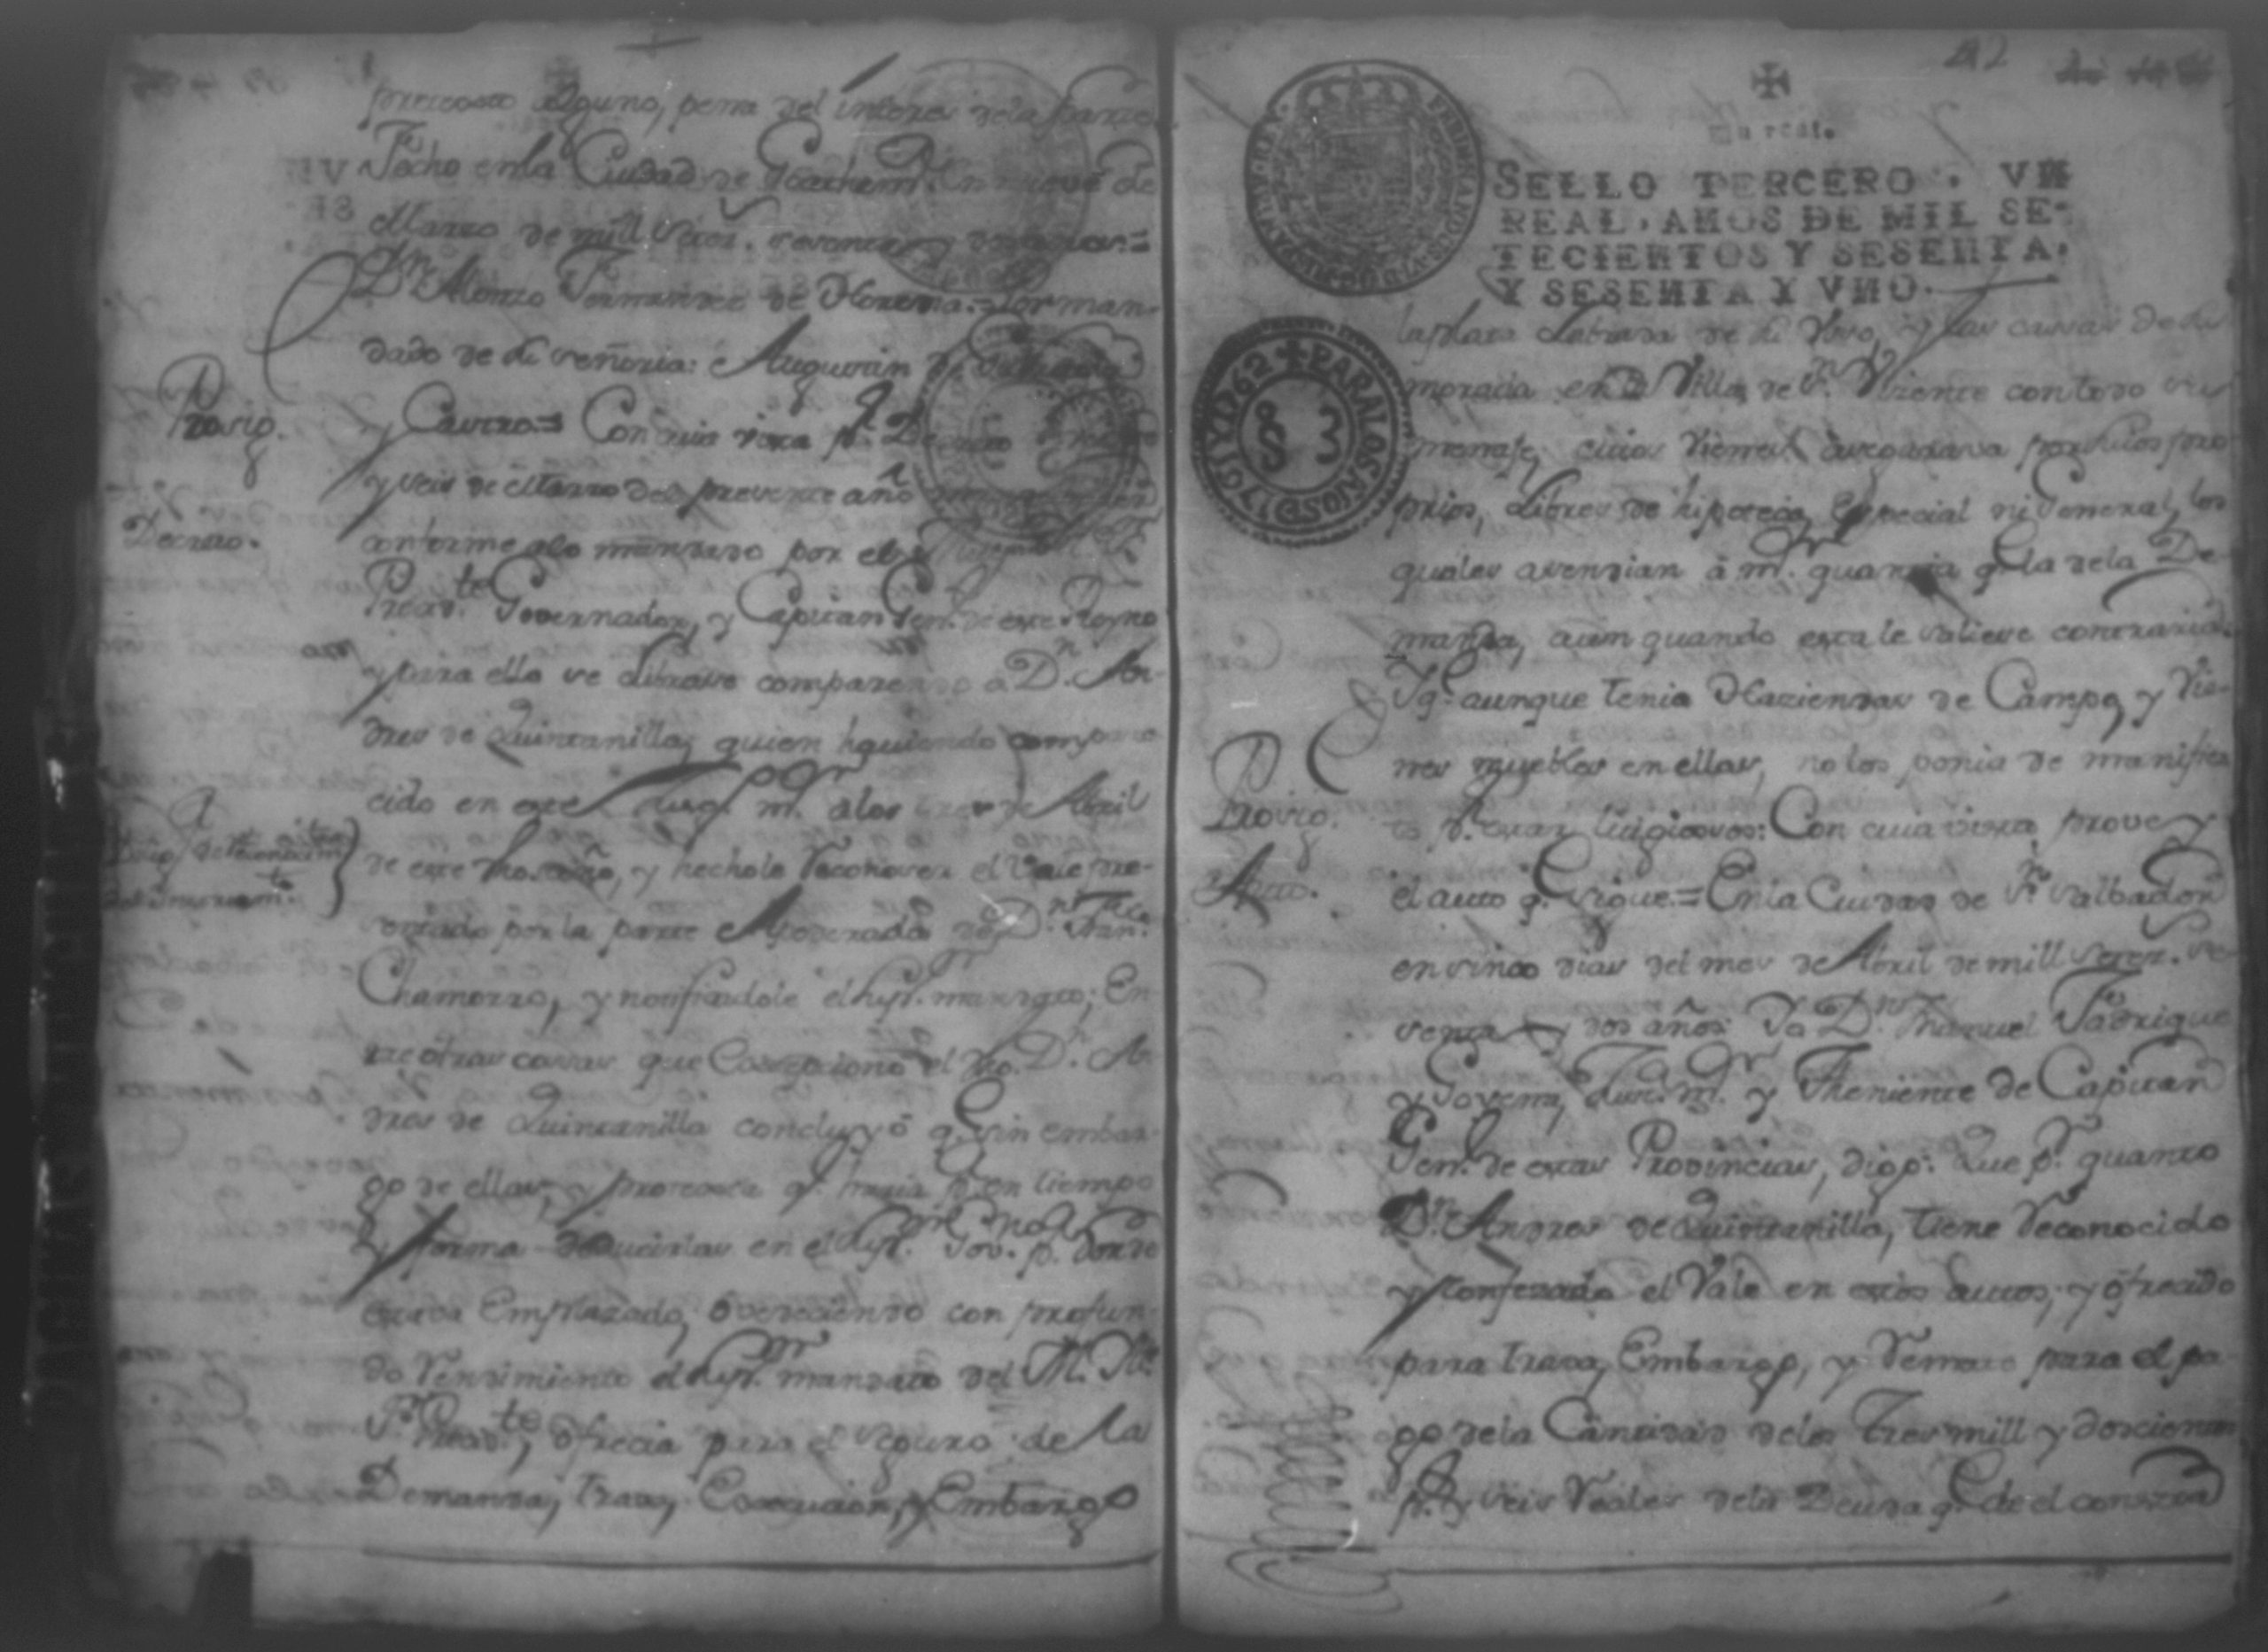 pretexto alguno, pena del interes dela parte
Fecho enla Ciudad de Goathem.ª En nueve de
Marzo de mill setez.s sesenta y dos años=
D.n Alonso Fernandez de Heredia. Por man-
dado de su señoria: Augustin de
y Castro= Con cuia vista p.r
y seis de Marzo del presente año
conforme alo mandado por el
Presid.te Governador, y Capitan Gen.l de este Reyno
y para ello se librase comparendo a D.n An-
dres de Quintanilla, quien haviendo compare
cido en este Juzg.do m.r alos tres de Abril
de este dho año, y hechole Reconoser el Vale pre-
sentado por la parte Apoderada de D.n Fran.co
Chamorro, y notificadole el Sup.or mandato; En-
tre otras cosas que Excepcionó el dho. D.n An-
dres de Quintanilla concluyó q.e sin embar-
go de ellas, y protexta q.e hacia p.a en tiempo
y forma deducirlas en el Sup.or Gov.no p.r donde
estava Emplazado, Obedeciendo con profun-
do Rendimiento el Sup.or mandato del M. Il.e
S.r Presid.te, ofrecia para el seguro de la
Demanda, trava, Execucion, y Embargo
Prosig.
Decreto.
42
Un real.
SELLO TERCERO, VN
REAL, AÑOS DE MIL SE-
TECIENTOS Y SESENTA,
Y SESENTA Y VNO.
PARA LOS AÑOS D 1761 Y 1762
S 3
la plata Labrada de su Uso, y las casas de su
morada en la Villa de S.n Vizente con todo su
menaje, cuios Vienes aseguraba por suios pro-
prios, Libres de hipoteca Especial ni General, los
quales asendian á m.r quantia q.e la dela De-
manda, aun quando esta le saliese contraria.
Y q.e aunque tenia Haziendas de Campo, y Vie-
nes muebles en ellas, no los ponia de manifies-
to p.r estar litigiosos: Con cuia vista provey
el auto q.e Sigue.= Enla Ciudad de S.n Salbador
en sinco dias del mes de Abril de mill setez.s se-
senta y dos años. Yo D.n Manuel Fadrique
y Goyena, Just.a m.r y Theniente de Capitan
Gen.l de estas Provincias, digo: Que p.r quanto
D.n Andres de Quintanilla, tiene Reconocido
y confesado el Vale en estos autos, y ofrecido
para trava, Embargo, y Remate para el pa-
go dela Cantidad delos Tres mill y doscientos
p.s y seis Reales dela Deuda q.e de el consta
Provig.
Auto.